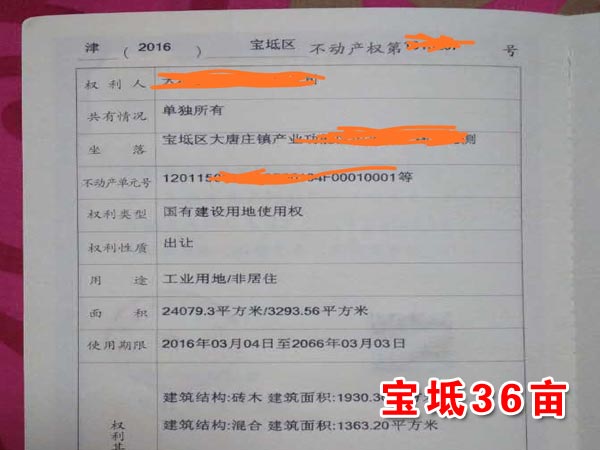 津 ( 2016 ) 宝坻区 不动产权第 号
权利人
共有情况 单独所有
坐落 宝坻区大唐庄镇产业功 测
不动产单元号 1201150 F00010001等
权利类型 国有建设用地使用权
权利性质 出让
用途 工业用地/非居住
面积 24079.3平方米/3293.56平方米
使用期限 2016年03月04日至2066年03月03日
建筑结构:砖木 建筑面积:1930.3
建筑结构:混合 建筑面积:1363.20平方米
权利其
宝坻36亩